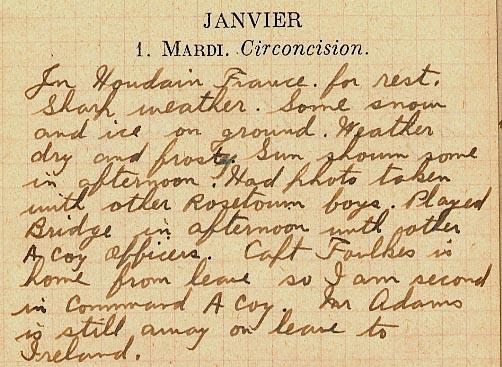 JANVIER
1. MARDI. Circoncision.
In Houdain France. for rest.
Sharp weather. Some snow
and ice on ground. Weather
dry and frosty. Sun shown some
in afternoon. Had photo taken
with other Rosetown boys. Played
Bridge in afternoon with other
A Coy Officers. Capt Foulkes is
home from leave so I am second
in Command A Coy. Mr Adams
is still away on leave to
Ireland.